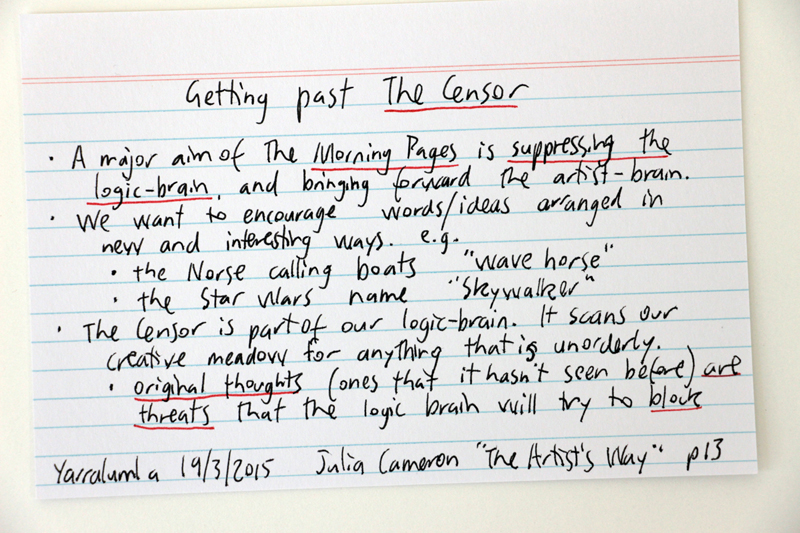 Getting past The Censor
· A major aim of The Morning Pages is suppressing the
logic-brain, and bringing forward the artist-brain.
· We want to encourage words/ideas arranged in
new and interesting ways. e.g.
· the Norse calling boats "wave horse"
· the Star Wars name "Skywalker"
· The Censor is part of our logic-brain. It scans our
creative meadow for anything that is unorderly.
· original thoughts (ones that it hasn't seen before) are
threats that the logic brain will try to block
Yarralumla 19/3/2015 Julia Cameron "The Artist's Way" p13